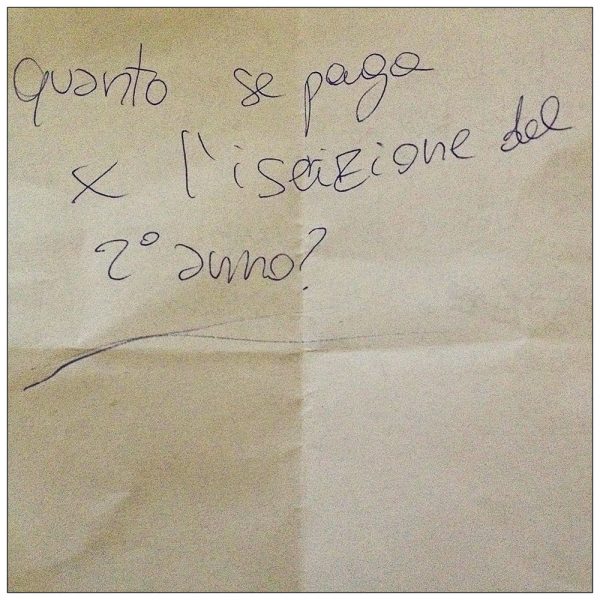 quanto se paga
x l'iscrizione del
2° anno?